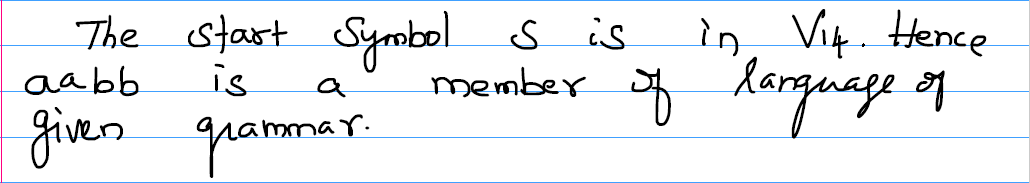 The start Symbol S is in V14. Hence
aabb is a member of language of
given grammar.